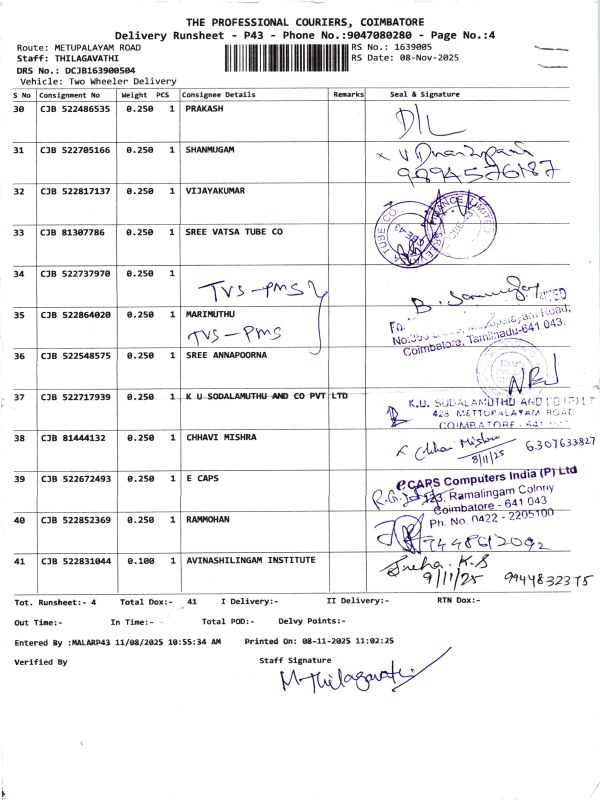 THE PROFESSIONAL COURIERS, COIMBATORE
Delivery Runsheet - P43 - Phone No.:9047080280 - Page No.:4
Route: METUPALAYAM ROAD RS No.: 1639005
Staff: THILAGAVATHI RS Date: 08-Nov-2025
DRS No.: DCJB163900504
Vehicle: Two Wheeler Delivery
S No Consignment No Weight PCS Consignee Details Remarks Seal & Signature
30 CJB 522486535 0.250 1 PRAKASH
D/L
31 CJB 522705166 0.250 1 SHANMUGAM
9894576187
32 CJB 522817137 0.250 1 VIJAYAKUMAR
33 CJB 81307786 0.250 1 SREE VATSA TUBE CO
TUBE CO
34 CJB 522737970 0.250 1
TVS-PMS
35 CJB 522864020 0.250 1 MARIMUTHU
TVS-PMS
Coimbatore, Tamilnadu-641 043.
36 CJB 522548575 0.250 1 SREE ANNAPOORNA
37 CJB 522717939 0.250 1 K U SODALAMUTHU AND CO PVT LTD
K.U. SODALAMUTHU AND CO (P) LT
428 METTUPALAYAM ROAD
COIMBATORE
38 CJB 81444132 0.250 1 CHHAVI MISHRA
Chhavi Mishra 6307633827
8/11/25
39 CJB 522672493 0.250 1 E CAPS
eCAPS Computers India (P) Ltd
123, Ramalingam Colony
Coimbatore - 641 043
Ph. No. 0422 - 2205100
40 CJB 522852369 0.250 1 RAMMOHAN
41 CJB 522831044 0.100 1 AVINASHILINGAM INSTITUTE
Sneha. K.S
9/11/25 9944832375
Tot. Runsheet:- 4 Total Dox:- 41 I Delivery:- II Delivery:- RTN Dox:-
Out Time:- In Time:- Total POD:- Delvy Points:-
Entered By :MALARP43 11/08/2025 10:55:34 AM Printed On: 08-11-2025 11:02:25
Verified By Staff Signature
M.Thilagavathi